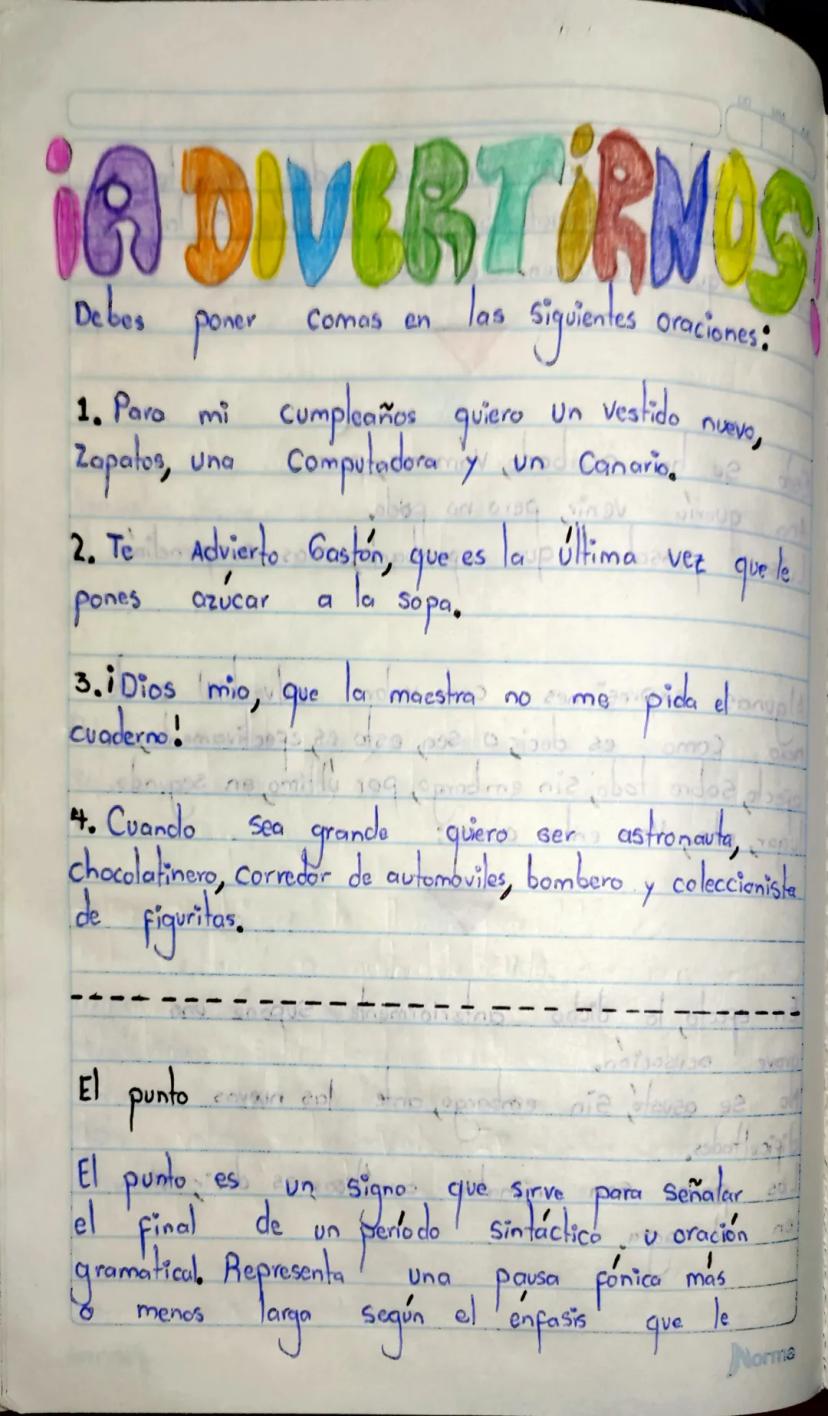 ¡A DIVERTIRNOS!
Debes poner comas en las siguientes oraciones:
1. Para mi cumpleaños quiero un vestido nuevo,
Zapatos, una Computadora y un Canario.
2. Te Advierto Gastón, que es la última vez que le
pones azúcar a la sopa.
3. ¡Dios mio, que la maestra no me pida el
cuaderno!
4. Cuando sea grande quiero ser astronauta,
chocolatinero, corredor de automoviles, bombero y coleccionista
de figuritas.
El punto
El punto es un signo que sirve para señalar
el final de un período sintáctico u oración
gramatical. Representa una pausa fónica más
o menos larga según el énfasis que le
Norma